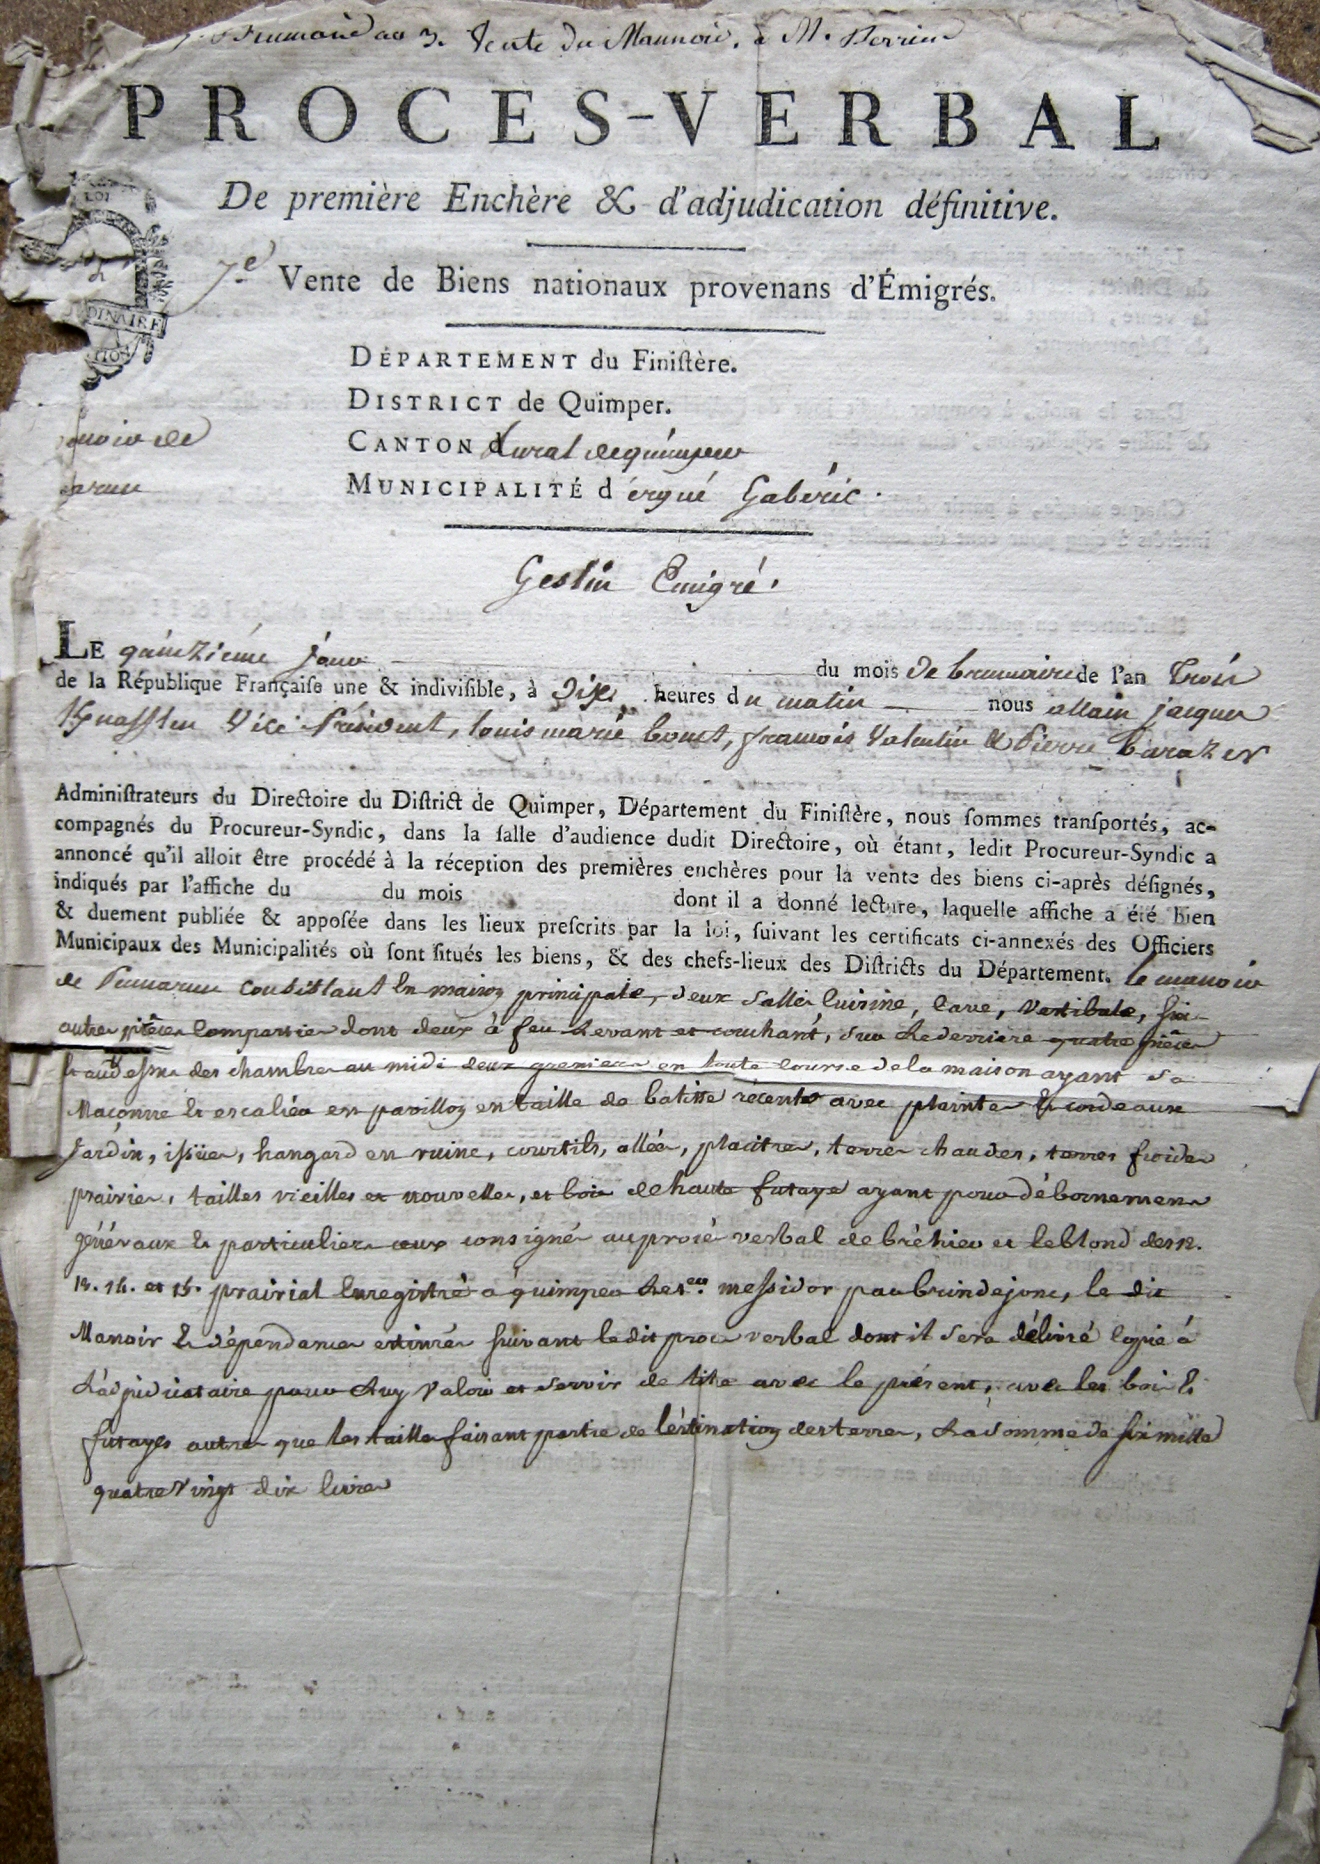 Brumaire an 3. Vente du Mannoir. à M. Perrin
PROCES-VERBAL
De première Enchère & d'adjudication définitive.
LOI
7e Vente de Biens nationaux provenans d'Émigrés.
DINAIRE
DÉPARTEMENT du Finistère.
DISTRICT de Quimper.
anoir de CANTON rural de quimper
MUNICIPALITÉ d'ergué Gabéric.
Geslin Emigré.
LE quinzième jour du mois de brumaire de l'an trois
de la République Française une & indivisible, à dix heures du matin nous allain jacques
Vice Président, louis marie bouet, francois Valentin & Pierre barazer
Administrateurs du Directoire du District de Quimper, Département du Finistère, nous sommes transportés, ac-
compagnés du Procureur-Syndic, dans la salle d'audience dudit Directoire, où étant, ledit Procureur-Syndic a
annoncé qu'il alloit être procédé à la réception des premières enchères pour la vente des biens ci-après désignés,
indiqués par l'affiche du du mois dont il a donné lecture, laquelle affiche a été bien
& duement publiée & apposée dans les lieux prescrits par la loi, suivant les certificats ci-annexés des Officiers
Municipaux des Municipalités où sont situés les biens, & des chefs-lieux des Districts du Département. le manoir
de Pennarun consistant en maison principale, deux salles cuisine, cave, vestibule, six
autres pièces comparties dont deux à feu levant et couchant, sur le derriere quatre pièces
et audessus des chambres au midi deux greniers en toute course de la maison ayant sa
Maçonne & escalier en pavillon en taille de batisse récente avec plainte & cordeaux
Jardin, issües, hangard en ruine, courtils, allée, placitres, terres chaudes, terres froides
prairies, tailles vieilles et nouvelles, et bois de haute futaye ayant pour débornemens
généraux & particuliers ceux consignés au procé verbal de bréhier et leblond des 12.
13. 14. et 15. prairial Enregistré à quimper le 1er. messidor par brindejonc, le dit
Manoir & dépendances estimés suivant le dit proces verbal dont il sera délivré copie à
L'adjudicataire pour luy valoir et servir de titre avec le présent, avec les bois &
futayes autres que les tailles faisant partie de l'estimation des terres, La somme de six mille
quatre vingt dix livres